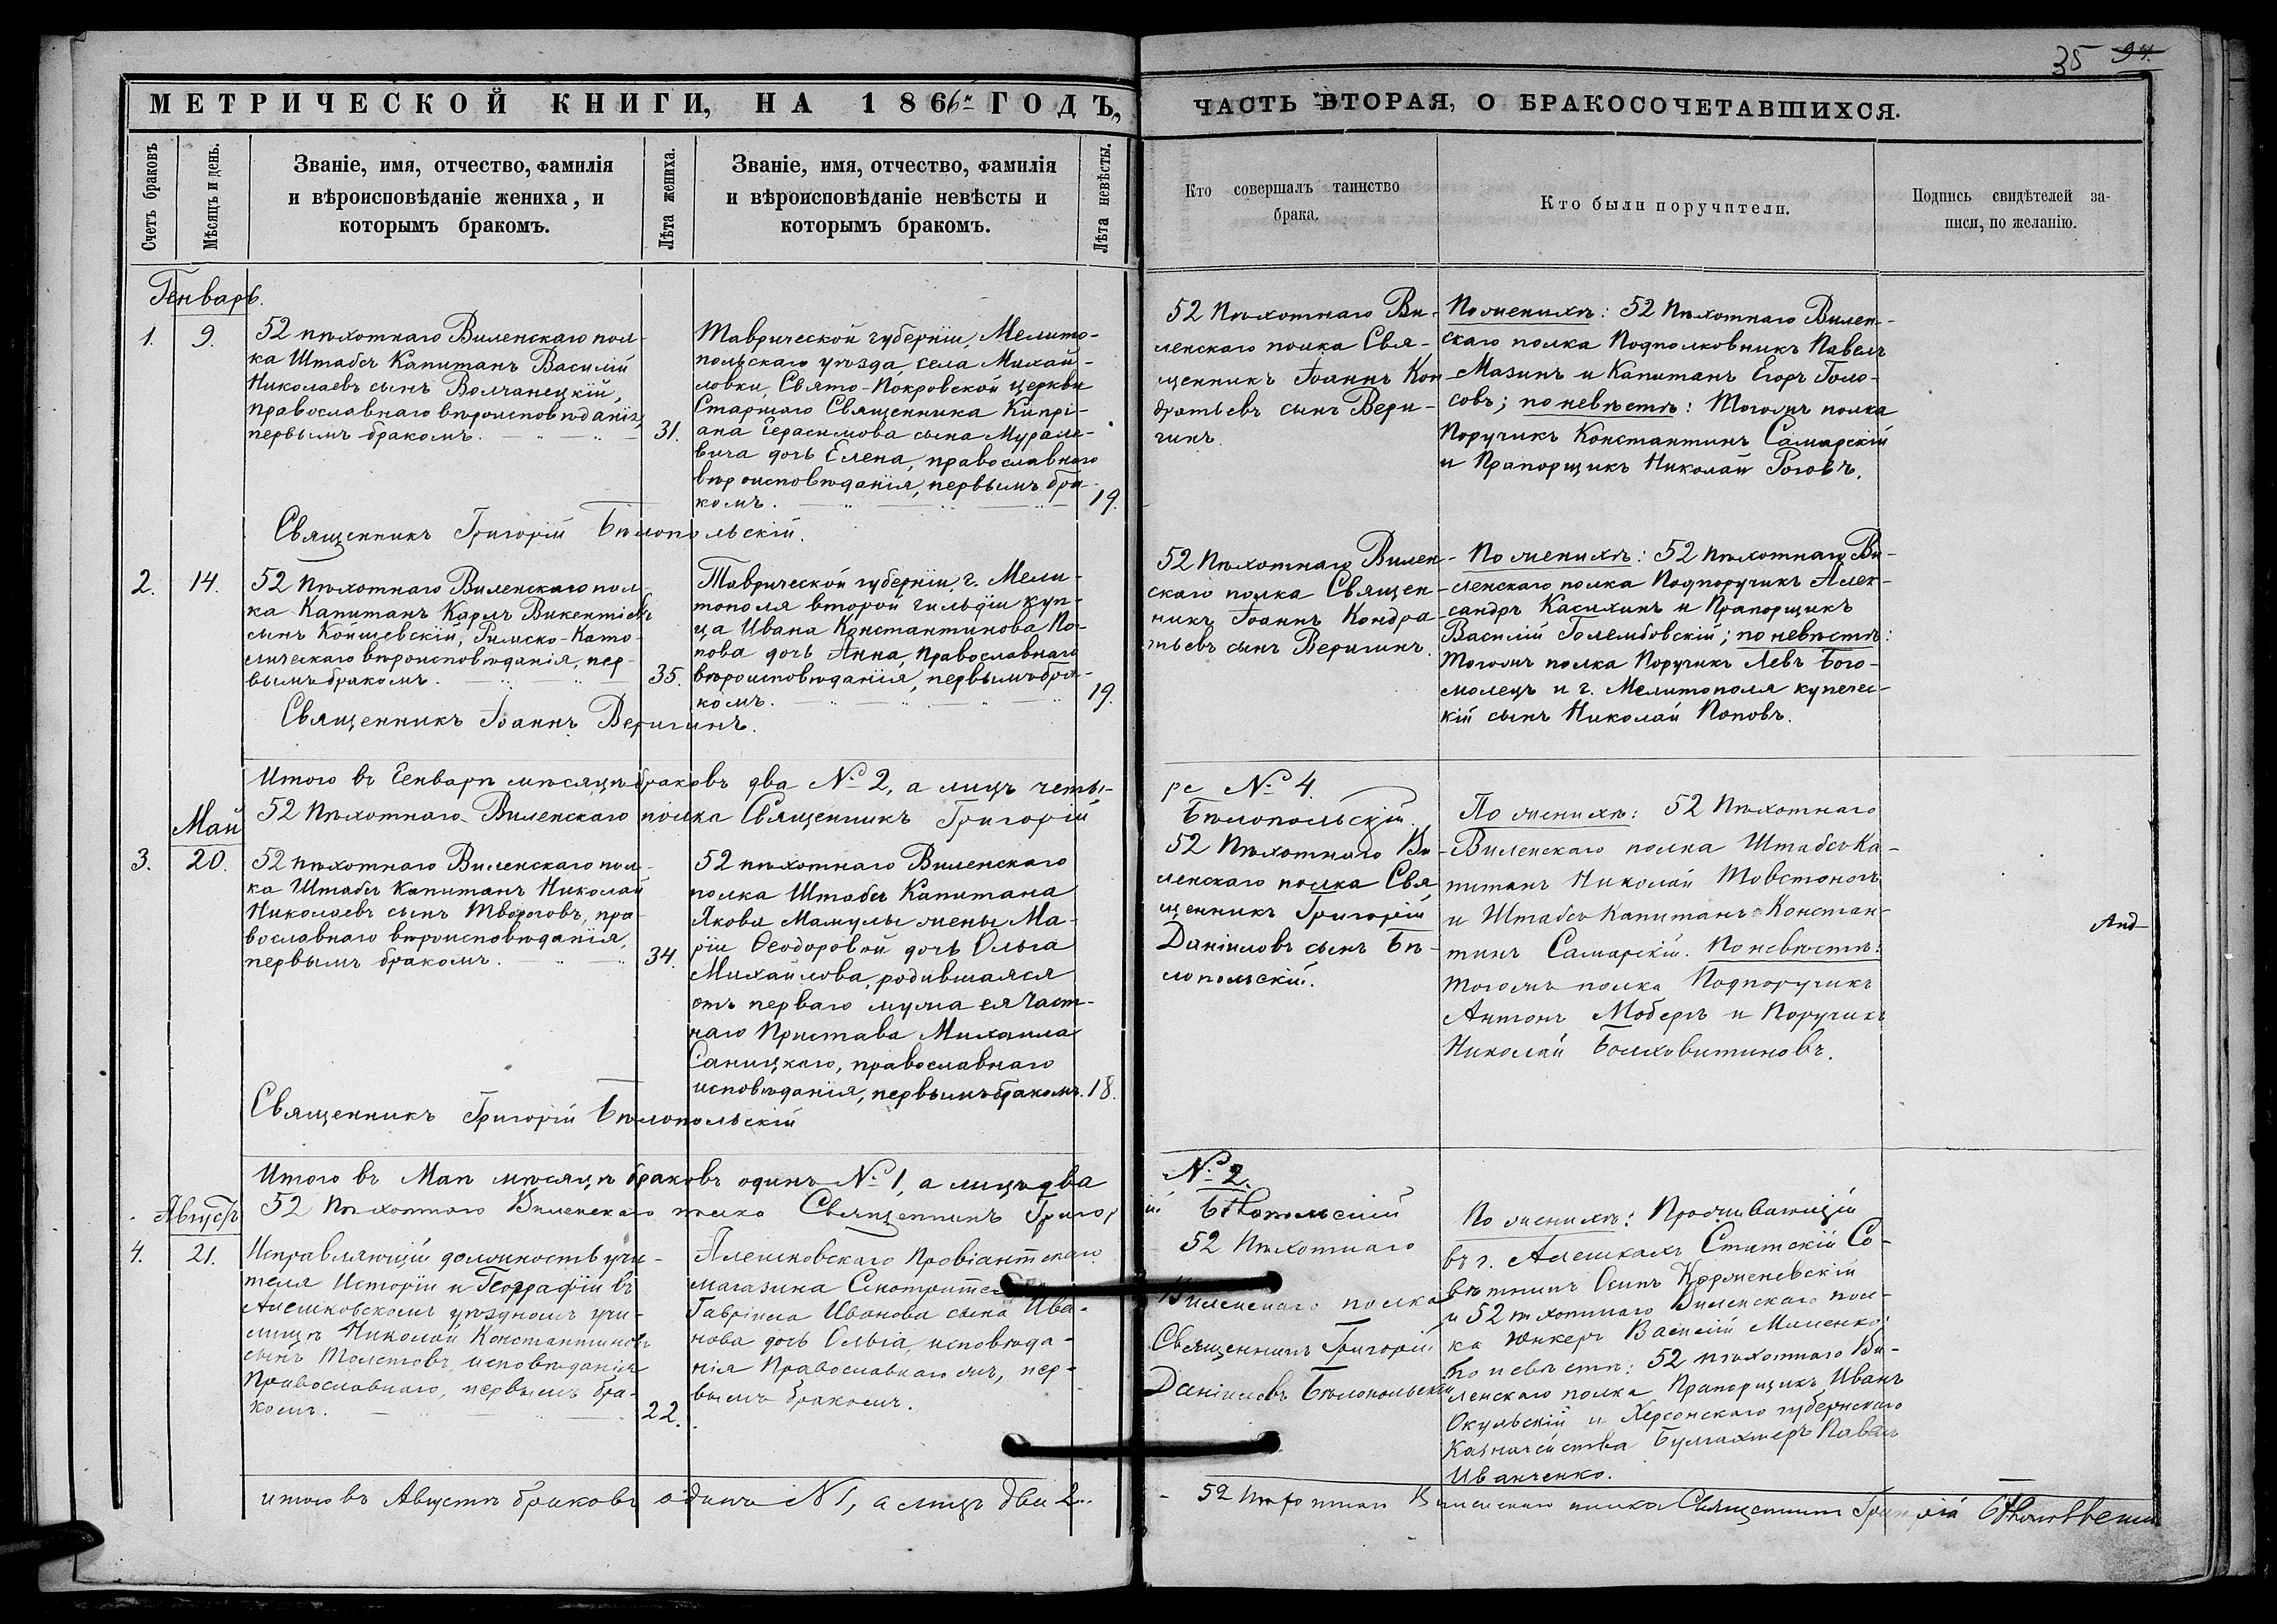 35 94.
МЕТРИЧЕСКОЙ КНИГИ, НА 1866й ГОДЪ,
ЧАСТЬ ВТОРАЯ, О БРАКОСОЧЕТАВШИХСЯ.
Счетъ браковъ
Мѣсяцъ и день.
Званіе, имя, отчество, фамилія
и вѣроисповѣданіе жениха, и
которымъ бракомъ.
Лѣта жениха.
Званіе, имя, отчество, фамилія
и вѣроисповѣданіе невѣсты и
которымъ бракомъ.
Лѣта невѣсты.
Кто совершалъ таинство
брака.
Кто были поручители.
Подпись свидѣтелей за-
писи, по желанію.
Генварь.
1.
9.
52 пѣхотнаго Виленскаго пол-
ка Штабсъ Капитанъ Василій
Николаевъ сынъ Волчанецкій,
православнаго вѣроисповѣданія,
первымъ бракомъ.
31.
Таврической губерніи, Мелито-
польскаго уѣзда, села Михай-
ловки, Свято-Покровской церкви
Старшаго Священника Кипрі-
ана Герасимова сына Мурале-
вича дочь Елена, православнаго
вѣроисповѣданія, первымъ бра-
комъ.
19.
52 Пѣхотнаго Ви-
ленскаго полка Свя-
щенникъ Іоаннъ Кон-
дратьевъ сынъ Вери-
гинъ.
По женихѣ: 52 Пѣхотнаго Вилен-
скаго полка Подполковникъ Павелъ
Мазинъ и Капитанъ Егоръ Голо-
совъ; по невѣстѣ: Тогожъ полка
Поручикъ Константинъ Самарскій
и Прапорщикъ Николай Роговъ.
Священникъ Григорій Бѣлопольскій.
2.
14.
52 Пѣхотнаго Виленскаго пол-
ка Капитанъ Карлъ Викентіевъ
сынъ Коншевскій, Римско-Като-
лическаго вѣроисповѣданія, пер-
вымъ бракомъ.
35.
Таврической губерніи, г. Мели-
тополя второй гильдіи куп-
ца Ивана Константинова По-
пова дочь Анна, Православнаго
вѣроисповѣданія, первымъ бра-
комъ.
19.
52 Пѣхотнаго Вилен-
скаго полка Священ-
никъ Іоаннъ Кондра-
тьевъ сынъ Веригинъ.
По женихѣ: 52 пѣхотнаго Ви-
ленскаго полка Подпоручикъ Алек-
сандръ Касихинъ и Прапорщикъ
Василій Голембовскій; по невѣстѣ:
Тогожъ полка Поручикъ Левъ Бого-
молецъ и г. Мелитополя купечес-
кій сынъ Николай Поповъ.
Священникъ Іоаннъ Веригинъ.
Итого въ Генварѣ мѣсяцѣ браковъ два № 2, а лицъ четы-
ре № 4.
52 Пѣхотнаго Виленскаго полка Священникъ Григорій
Бѣлопольскій.
Май
3.
20.
52 пѣхотнаго Виленскаго пол-
ка Штабсъ Капитанъ Николай
Николаевъ сынъ Твороговъ, пра-
вославнаго вѣроисповѣданія,
первымъ бракомъ.
34.
52 пѣхотнаго Виленскаго
полка Штабсъ Капитана
Якова Мамулы жены Ма-
ріи Ѳеодоровой дочь Ольга
Михайлова, родившаяся
отъ перваго мужа ея Част-
наго Пристава Михаила
Саницкаго, православнаго
исповѣданія, первымъ бракомъ.
18.
52 Пѣхотнаго Ви-
ленскаго полка Свя
щенникъ Григорій
Даніиловъ сынъ Бѣ-
лопольскій.
По женихѣ: 52 Пѣхотнаго
Виленскаго полка Штабсъ Ка-
питанъ Николай Товстоногъ
и Штабсъ Капитанъ Констан-
тинъ Самарскій. По невѣстѣ:
тогожъ полка Подпоручикъ
Антонъ Мобергъ и Поручикъ
Николай Болховитиновъ.
Священникъ Григорій Бѣлопольскій
Итого въ Маѣ мѣсяцѣ браковъ одинъ № 1, а лицъ два
№ 2.
52 Пѣхотнаго Виленскаго полка Священникъ Григор
ій Бѣлопольскій
Августъ
4.
21.
Исправляющій должность учи-
теля Исторіи и Географіи въ
Алешковскомъ уѣздномъ учи-
лищѣ Николай Константиновъ
сынъ Толстовъ исповѣданія
Православнаго, первымъ бра-
комъ.
22.
Алешковскаго Провіантскаго
магазина Смотрителя
Гавріила Иванова сына Ива-
нова дочь Ольга, исповѣда-
нія Православнагожъ, пер-
вымъ бракомъ.
52 Пѣхотнаго
Виленскаго полка
Священникъ Григорій
Даніиловъ Бѣлопольскій
По женихѣ: Проживающій
въ г. Алешкахъ Статскій Со-
вѣтникъ Осипъ Корженевскій
и 52 пѣхотнаго Виленскаго пол-
ка Юнкеръ Василій Миленко.
По невѣстѣ: 52 пѣхотнаго Ви-
ленскаго полка Прапорщикъ Иванъ
Окульскій и Херсонскаго губернскаго
Казначейства Бухгалтеръ Павелъ
Иванченко.
итого въ Августѣ браковъ одинъ № 1, а лицъ два 2.
52 Пѣхотнаго Виленскаго полка Священникъ Григорій Бѣлопольскій